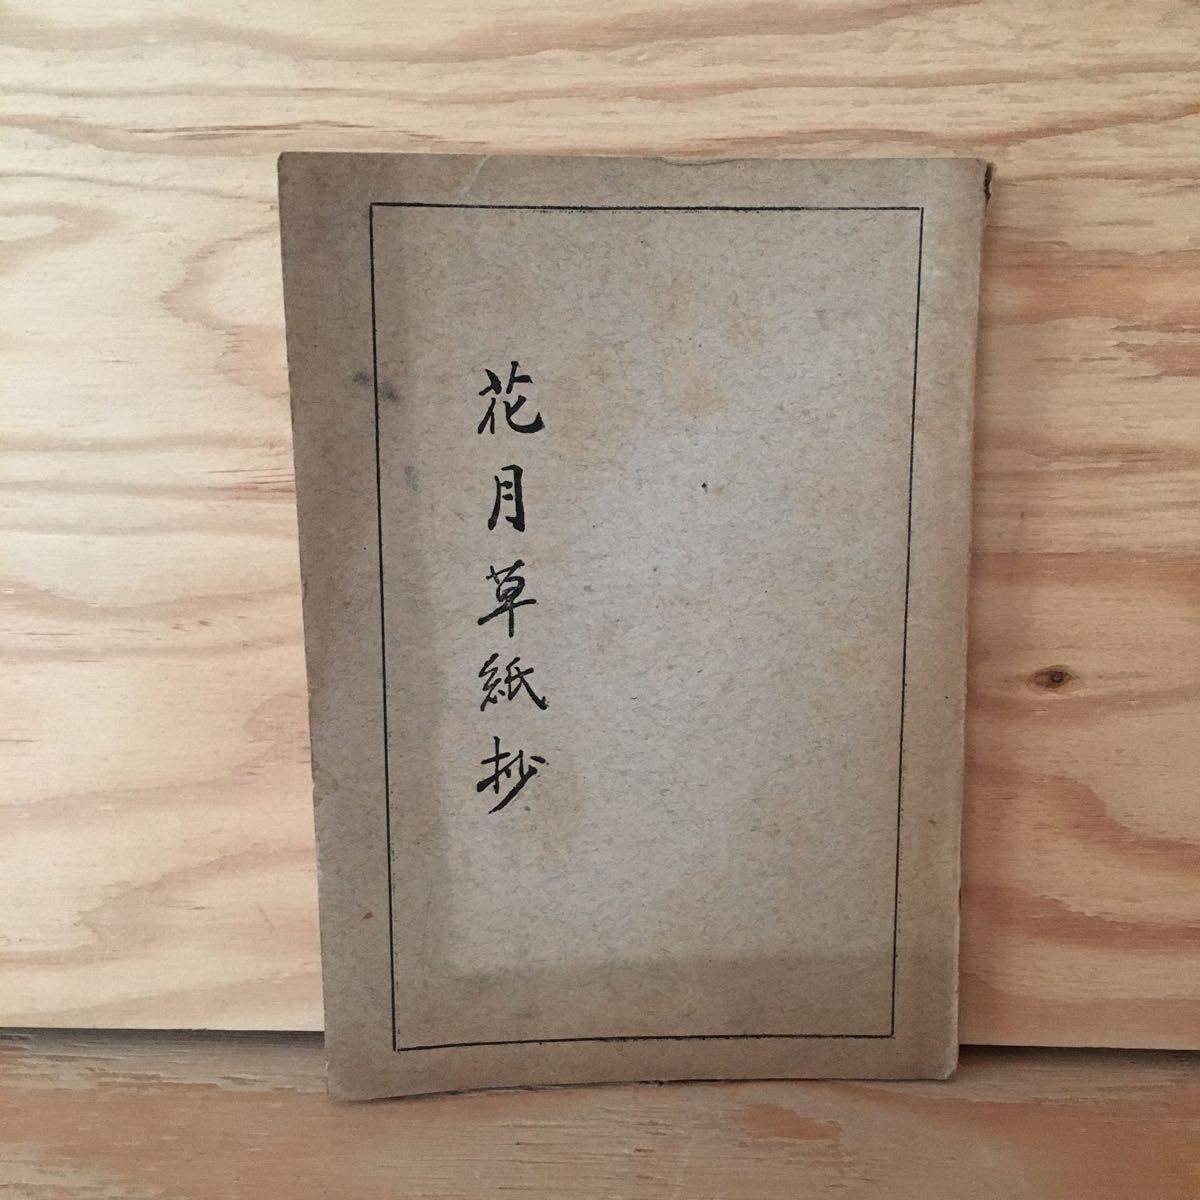 花月草紙抄